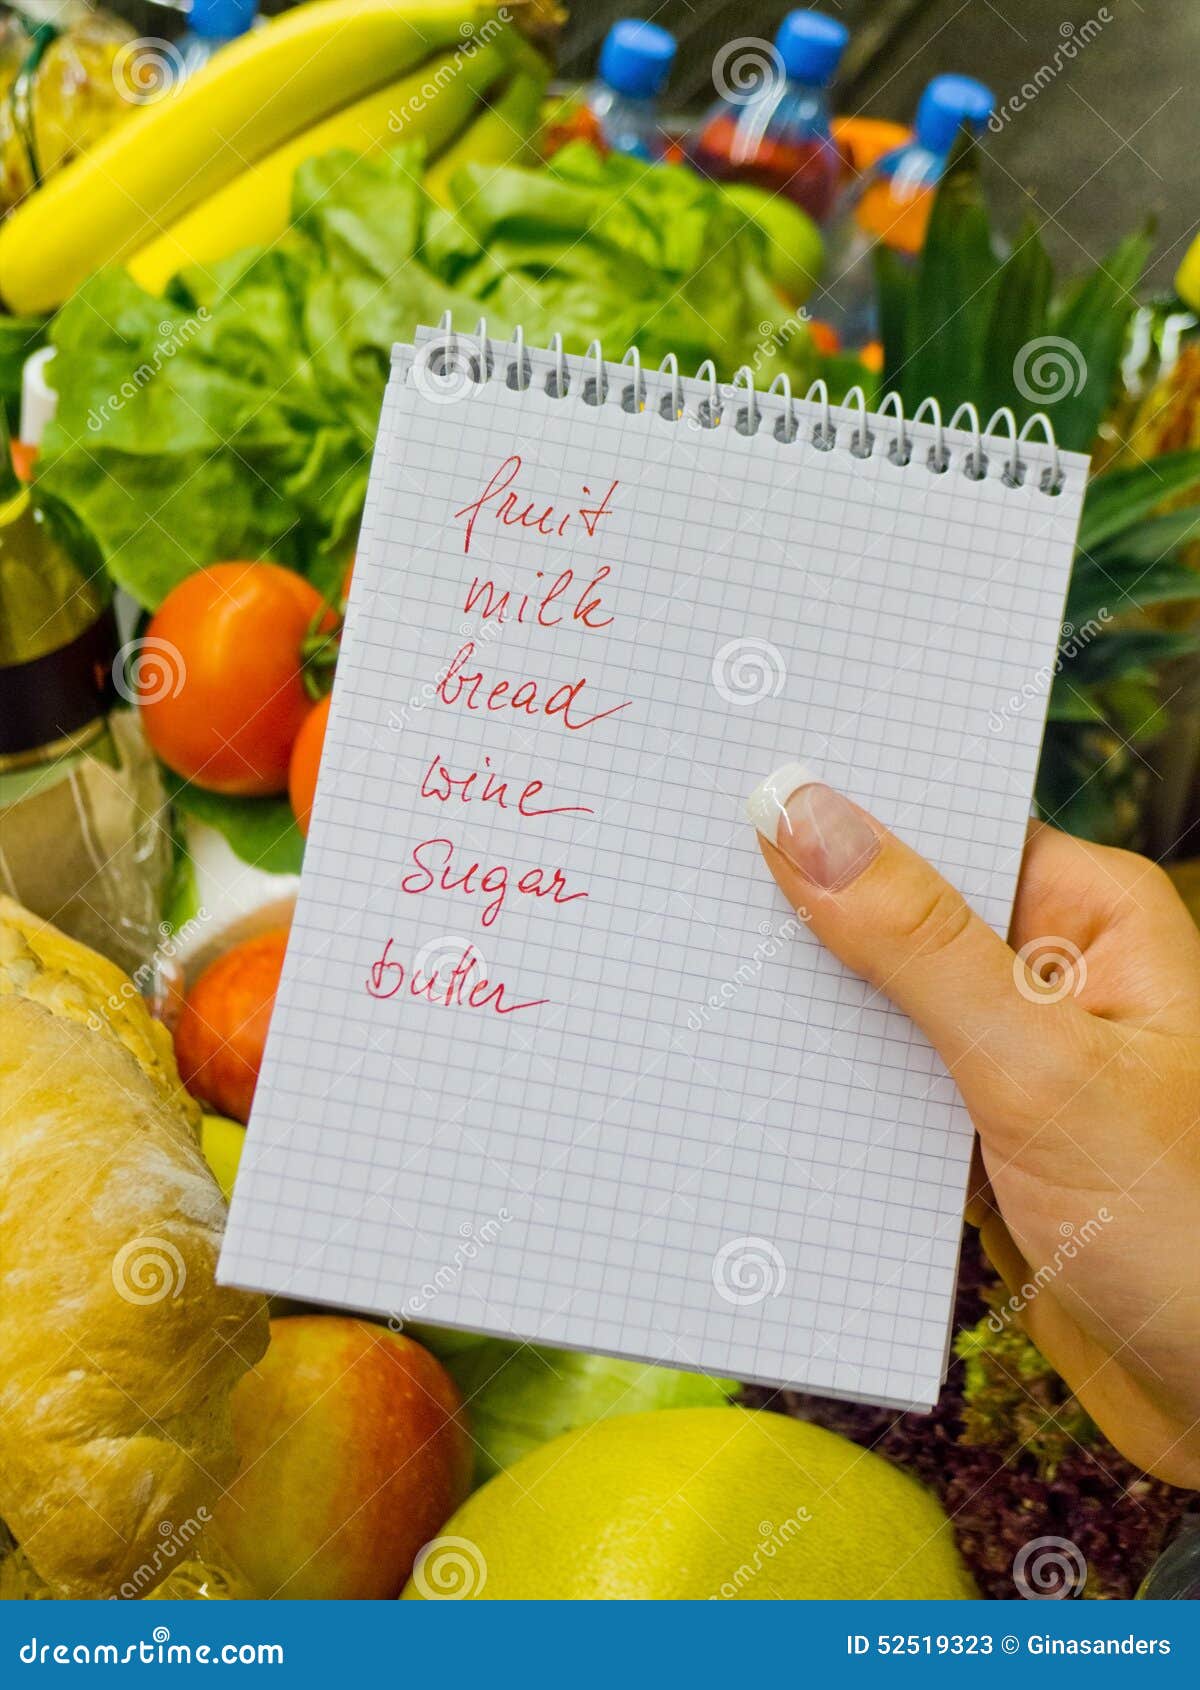 fruit
milk
bread
wine
Sugar
butter
dreamstime.com
ID 52519323 © Ginasanders